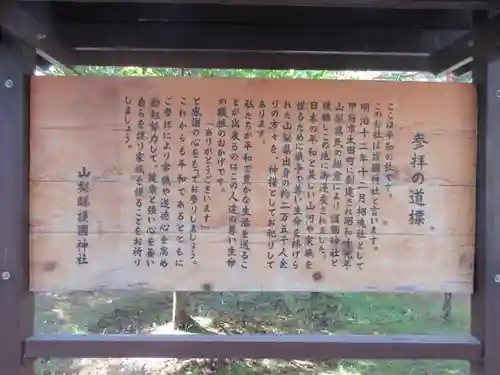 参拝の道標。
ここは平和の杜です。
このお社は護國神社と言います。
明治十二年十一月招魂社として
甲府市太田町に建てられ昭和十九年
山梨県民の総意により護國神社と
改称しこの地に御遷座されました。
日本の平和と美しい山河や家族を
護るために戦争で尊い生命を捧げら
れた山梨県出身の約二万五千人余
りの方々を、神様としてお祀りして
あります。
私たちが平和で豊かな生活を送るこ
とが出来るのはこの人達の尊い生命
の犠牲のおかげです。
「ありがとうございます」
と感謝の心をもってお参りしましょう。
これからも平和であるとともに
ご参拝により家族や道徳心を高め
勤勉努力して、健康と強い心を養い
自らを護り家族も護ることをお祈り
しましょう。
山梨縣護國神社